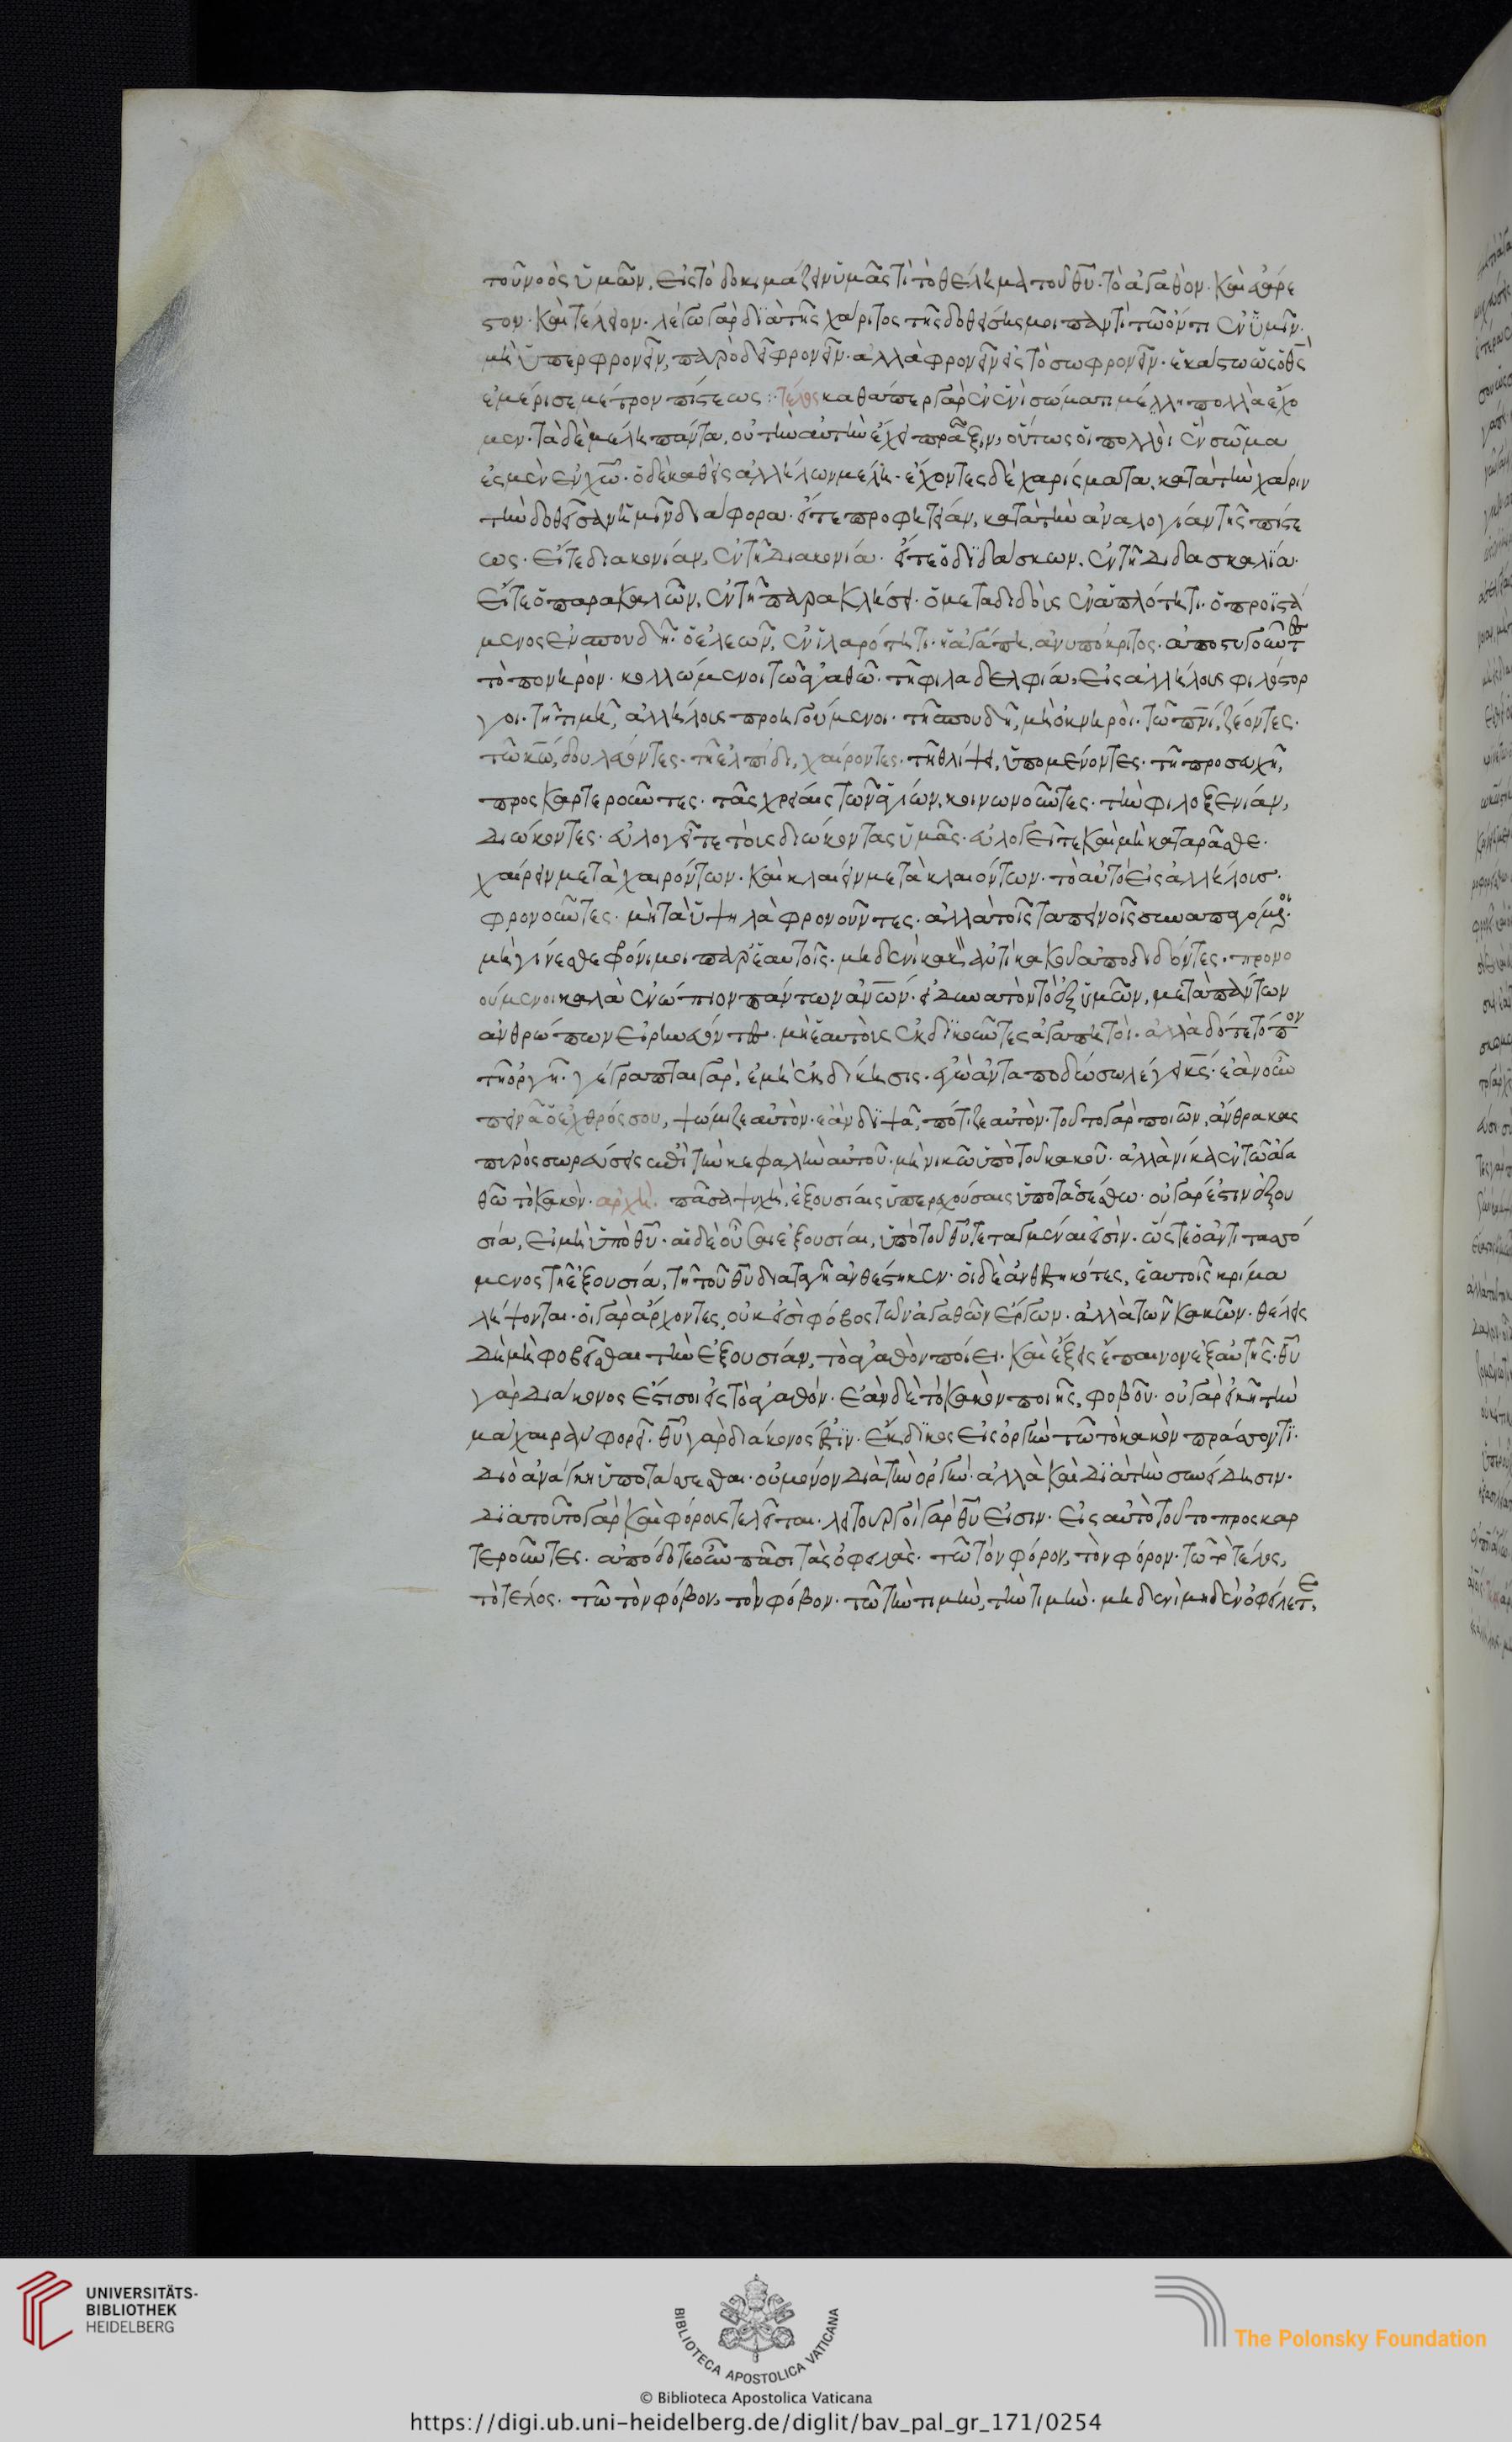 τοῦ νοὸς ὑμῶν, εἰς τὸ δοκιμάζειν ὑμᾶς τί τὸ θέλημα τοῦ θυ. τὸ ἀγαθὸν. καὶ εὐάρε
στον. καὶ τέλειον. λέγω γὰρ διὰ τῆς χάριτος τῆς δοθείσης μοι παντὶ τῶ ὄντι ἐν ὑμῖν.
μὴ ὑπερφρονεῖν, παρ ὃ δεῖ φρονεῖν. ἀλλὰ φρονεῖν εἰς τὸ σωφρονεῖν. ἑκάστω ὡς ὁ θς
ἐμέρισε μέτρον πίστεως : τέλος καθάπερ γὰρ ἐν ἑνὶ σώματι μέλη πολλὰ ἔχο
μεν. τὰ δὲ μέλη πάντα, οὐ τὴν αὐτὴν ἔχει πρᾶξιν, οὕτως οἱ πολλοὶ ἓν σῶμα
ἐσμὲν ἐν χω. ὁ δὲ καθεὶς ἀλλήλων μέλη. ἔχοντες δὲ χαρίσματα, κατὰ τὴν χάριν
τὴν δοθεῖσαν ἡμῖν διάφορα. εἴτε προφητείαν, κατὰ τὴν ἀναλογίαν τῆς πίστε
ως. εἴτε διακονίαν, ἐν τῆ διακονία. εἴτε ὁ διδάσκων, ἐν τῆ διδασκαλία.
εἴτε ὁ παρακαλῶν, ἐν τῆ παρακλήσει. ὁ μεταδιδοὺς ἐν ἁπλότητι. ὁ προϊστά
μενος ἐν σπουδῆ. ὁ ἐλεῶν, ἐν ἱλαρότητι. ἡ ἀγάπη, ἀνυπόκριτος. ἀποστυγοῦντ
τὸ πονηρὸν. κολλώμενοι τῶ ἀγαθῶ. τῆ φιλαδελφία, εἰς ἀλλήλους φιλόστορ
γοι. τῆ τιμῆ, ἀλλήλους προηγούμενοι. τῆ σπουδῆ, μὴ ὀκνηροὶ. τῶ πνι, ζέοντες.
τῶ κω, δουλεύοντες. τῆ ἐλπίδι, χαίροντες. τῆ θλίψει, ὑπομένοντες. τῆ προσευχῆ,
προσκαρτεροῦντες. ταῖς χρείαις τῶν ἁγίων, κοινωνοῦντες. τὴν φιλοξενίαν,
διώκοντες. εὐλογεῖτε τοὺς διώκοντας ὑμᾶς. εὐλογεῖτε καὶ μὴ καταρᾶσθε.
χαίρειν μετὰ χαιρόντων. καὶ κλαίειν μετὰ κλαιόντων. τὸ αὐτὸ εἰς ἀλλήλους
φρονοῦντες. μὴ τὰ ὑψηλὰ φρονοῦντες. ἀλλὰ τοῖς ταπεινοῖς συναπαγόμενοι.
μὴ γίνεσθε φρόνιμοι παρ ἑαυτοῖς. μηδενὶ κακὸν ἀντὶ κακοῦ ἀποδιδόντες. προνο
ούμενοι καλὰ ἐνώπιον πάντων ἀνων. εἰ δυνατὸν τὸ ἐξ ὑμῶν, μετὰ πάντων
ἀνθρώπων εἰρηνεύοντες. μὴ ἑαυτοὺς ἐκδικοῦντες ἀγαπητοὶ. ἀλλὰ δότε τόπον
τῆ ὀργῆ. γέγραπται γὰρ, ἐμὴ ἐκδίκησις. ἐγὼ ἀνταποδώσω λέγει κς. ἐὰν οὖν
πεινᾶ ὁ ἐχθρός σου, ψώμιζε αὐτὸν. ἐὰν διψᾶ, πότιζε αὐτὸν. τοῦτο γὰρ ποιῶν, ἄνθρακας
πυρὸς σωρεύσεις ἐπὶ τὴν κεφαλὴν αὐτοῦ. μὴ νικῶ ὑπὸ τοῦ κακοῦ. ἀλλὰ νίκα ἐν τῶ ἀγα
θῶ τὸ κακὸν. ἀρχὴ. πᾶσα ψυχὴ, ἐξουσίαις ὑπερεχούσαις ὑποτασσέσθω. οὐ γάρ ἐστιν ἐξου
σία, εἰ μὴ ὑπὸ θυ. αἱ δὲ οὖσαι ἐξουσίαι, ὑπὸ τοῦ θυ τεταγμέναι εἰσὶν. ὥστε ὁ ἀντιτασσό
μενος τῆ ἐξουσία, τῆ τοῦ θυ διαταγῆ ἀνθέστηκεν. οἱ δὲ ἀνθεστηκότες, ἑαυτοῖς κρίμα
λήψονται. οἱ γὰρ ἄρχοντες, οὐκ εἰσὶ φόβος τῶν ἀγαθῶν ἔργων. ἀλλὰ τῶν κακῶν. θέλεις
δὲ μὴ φοβεῖσθαι τὴν ἐξουσίαν, τὸ ἀγαθὸν ποίει. καὶ ἕξεις ἔπαινον ἐξ αὐτῆς. θυ
γὰρ διάκονος ἐστί σοι εἰς τὸ ἀγαθόν. ἐὰν δὲ τὸ κακὸν ποιῆς, φοβοῦ. οὐ γὰρ εἰκῆ τὴν
μάχαιραν φορεῖ. θυ γὰρ διάκονός ἐστιν. ἔκδικος εἰς ὀργὴν τῶ τὸ κακὸν πράσσοντι.
διὸ ἀνάγκη ὑποτάσσεσθαι. οὐ μόνον διὰ τὴν ὀργὴν. ἀλλὰ καὶ διὰ τὴν συνείδησιν.
διὰ τοῦτο γὰρ καὶ φόρους τελεῖται. λειτουργοὶ γὰρ θυ εἰσιν. εἰς αὐτὸ τοῦτο προσκαρ
τεροῦντες. ἀπόδοτε οὖν πᾶσι τὰς ὀφειλὰς. τῶ τὸν φόρον, τὸν φόρον. τῶ τὸ τέλος,
τὸ τέλος. τῶ τὸν φόβον, τὸν φόβον. τῶ τὴν τιμὴν, τὴν τιμὴν. μηδενὶ μηδὲν ὀφείλετε,
UNIVERSITÄTS-
BIBLIOTHEK
HEIDELBERG
BIBLIOTECA APOSTOLICA VATICANA
The Polonsky Foundation
© Biblioteca Apostolica Vaticana
https://digi.ub.uni-heidelberg.de/diglit/bav_pal_gr_171/0254